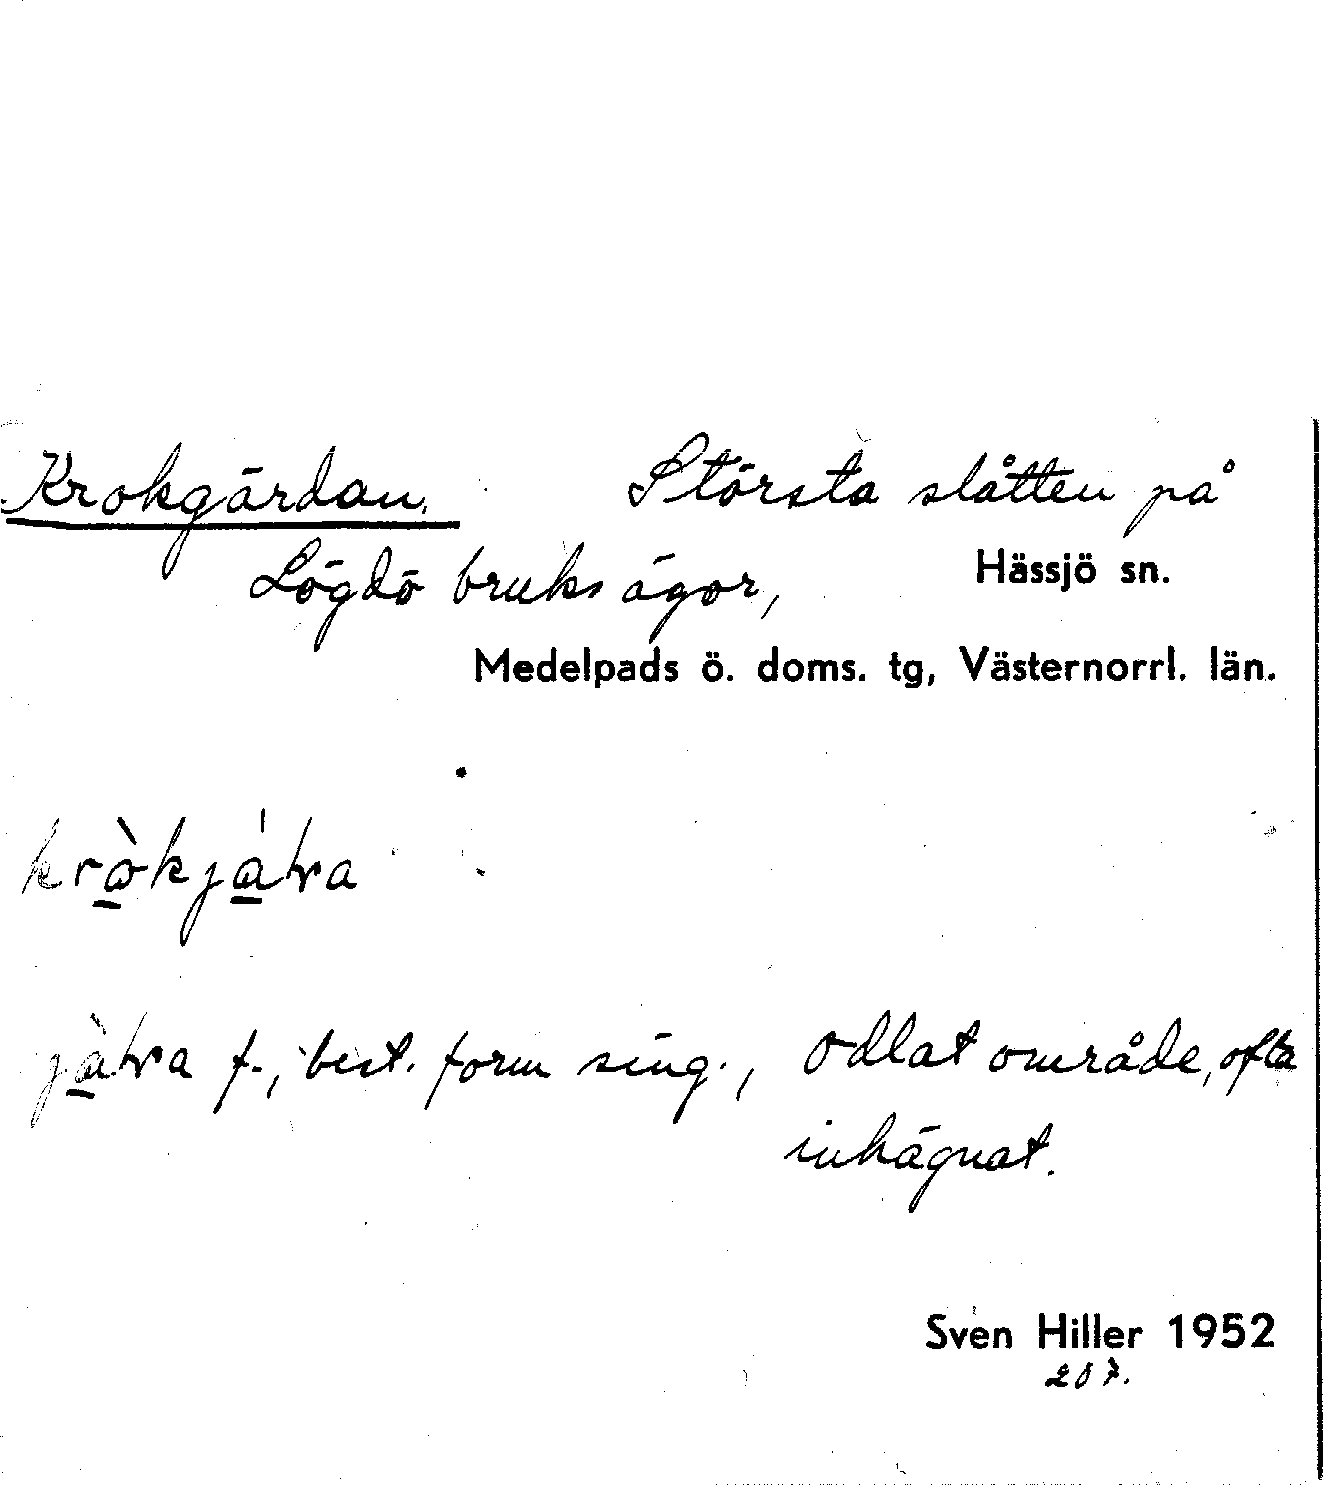 Krokgärdan. Största slåtten på
Lögdö bruks ägor, Hässjö sn.
Medelpads ö. doms. tg, Västernorrl. län.
f., best. form sing., odlat område, ofta
inhägnat.
Sven Hiller 1952
207.